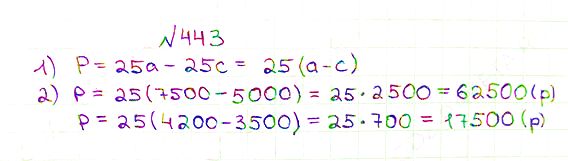 №443
1) P = 25a - 25c = 25(a-c)
2) P = 25(7500-5000) = 25·2500 = 62500(р)
P = 25(4200-3500) = 25·700 = 17500(р)